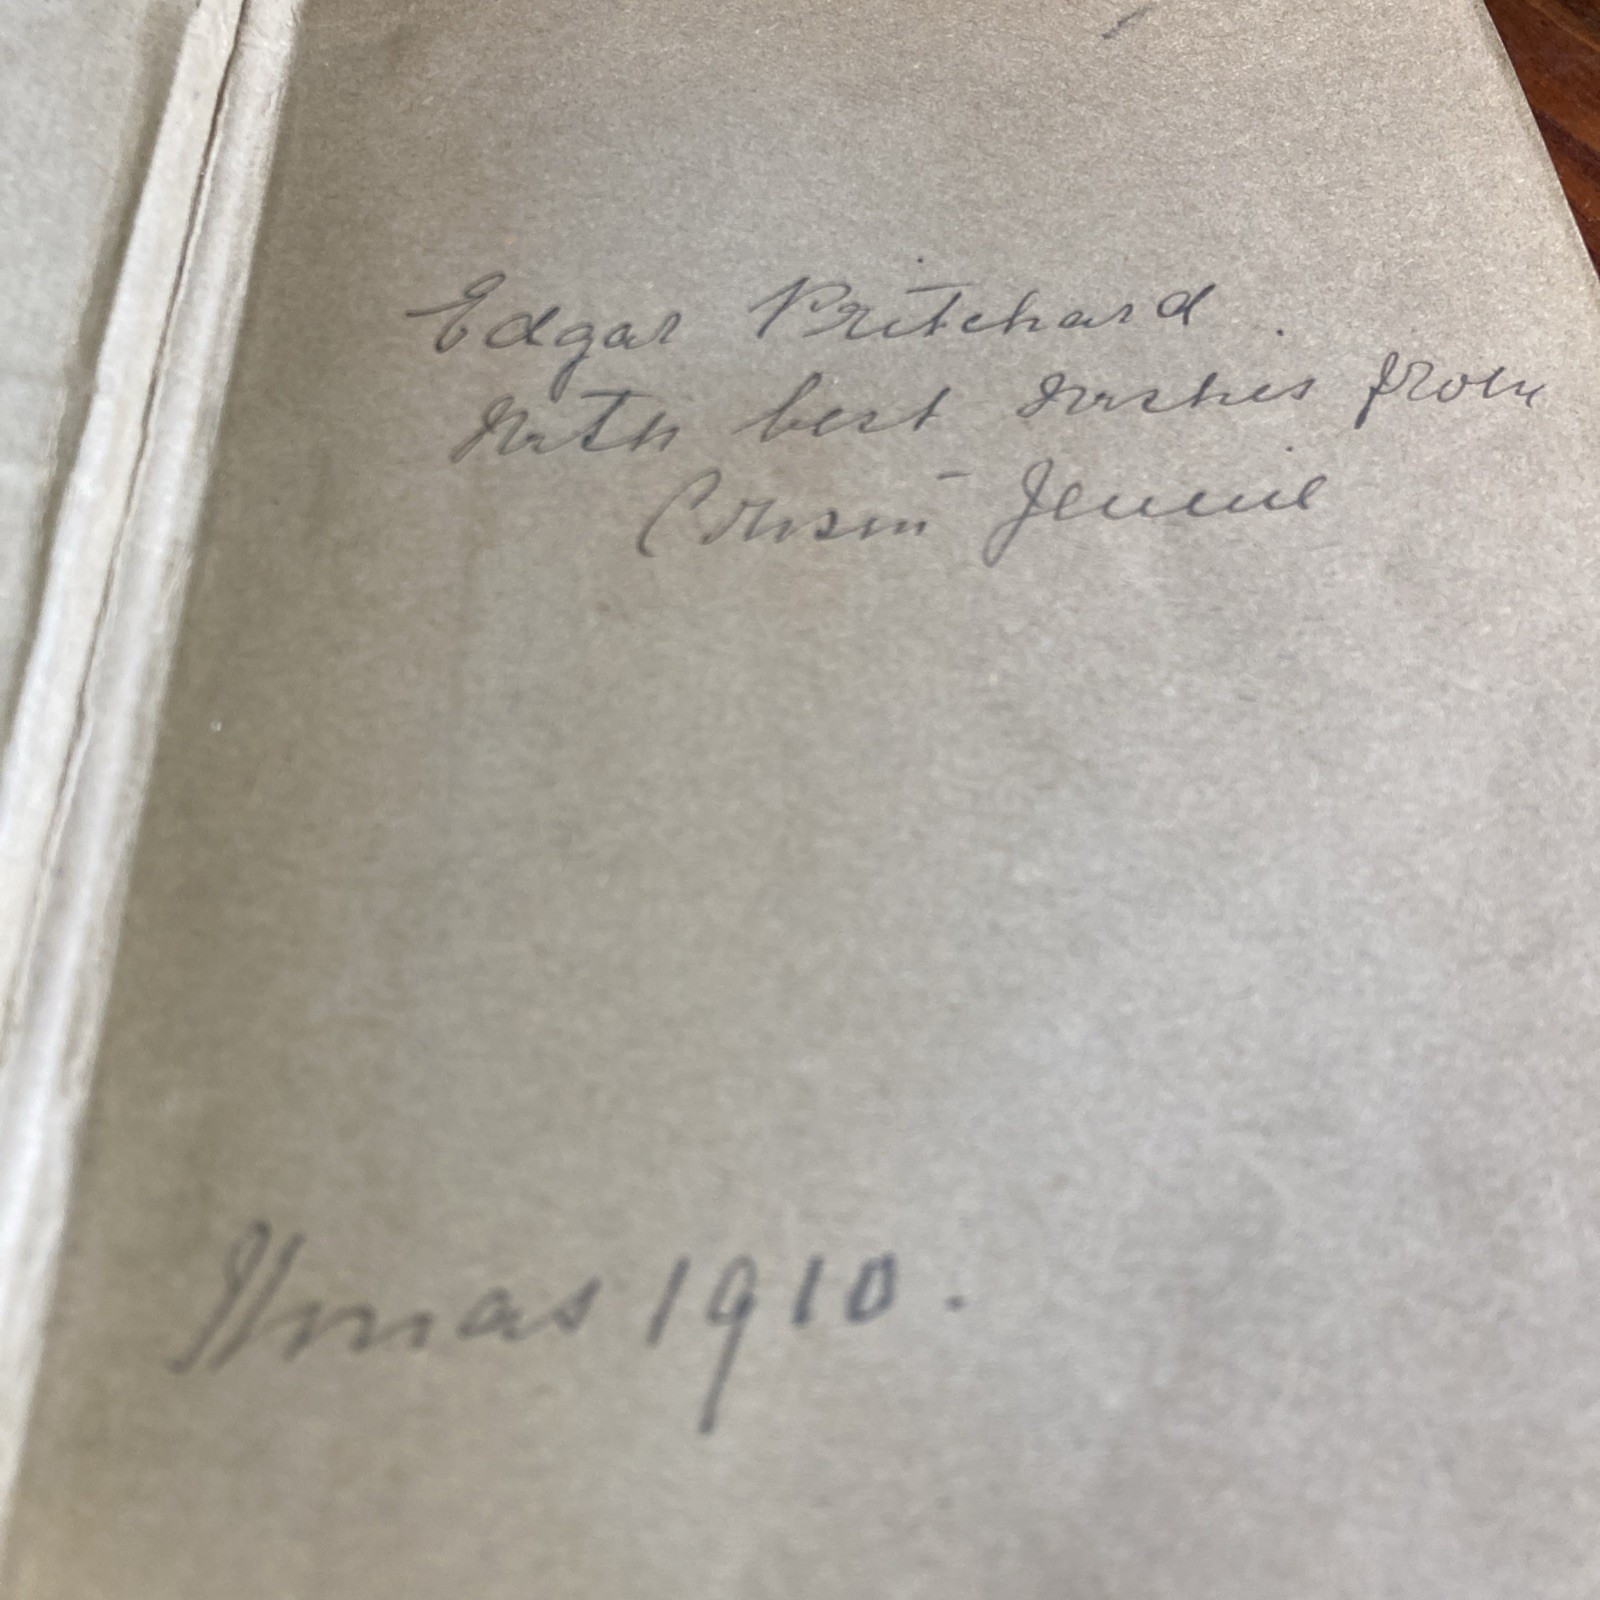 Edgar Pritchard.
With best wishes from
Cousin Jennie
Xmas 1910.